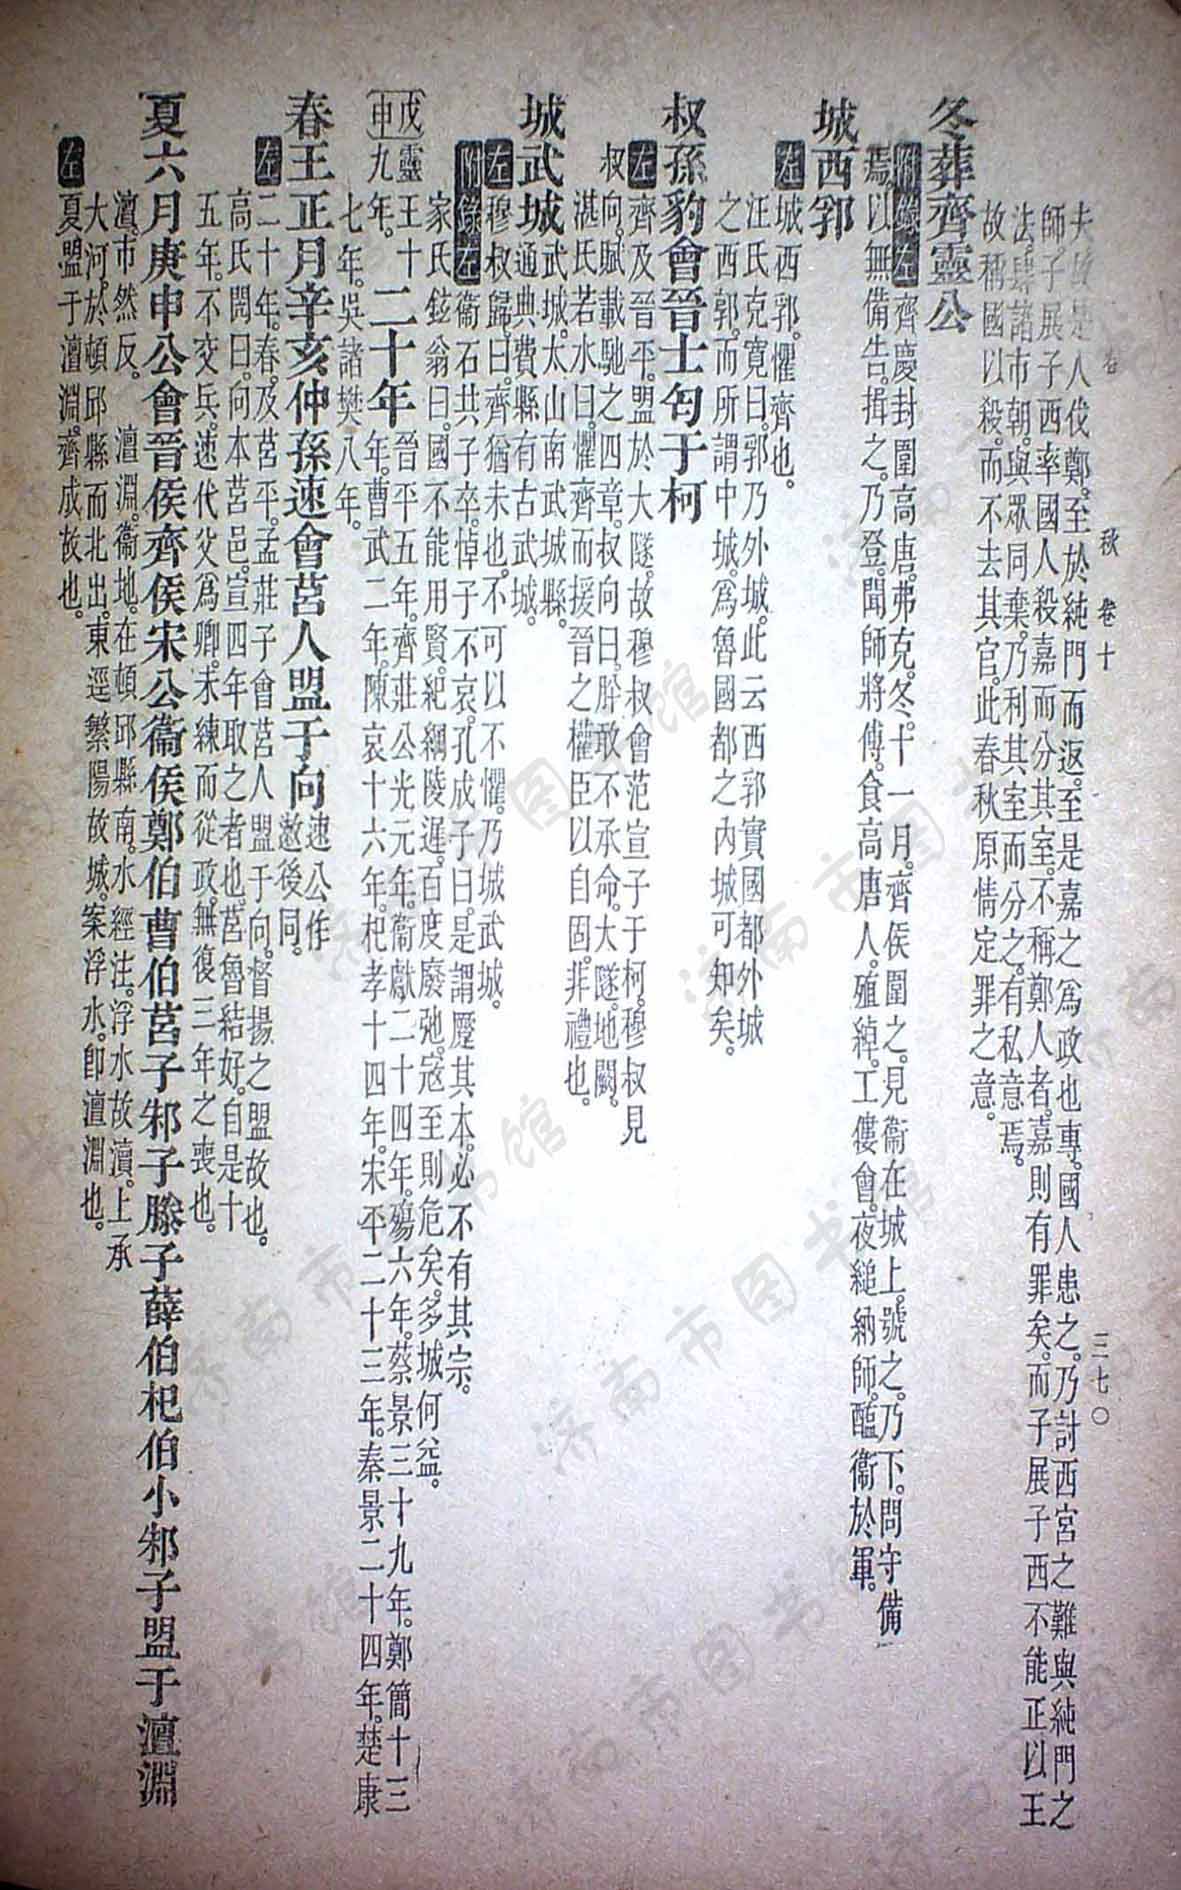 秋 卷十 三七〇
人伐鄭。至於純門而返。至是嘉之爲政也專。國人患之。乃討西宮之難與純門之
師。子展子西率國人殺嘉而分其室。不稱鄭人者。嘉則有罪矣。而子展子西不能正以王
法。肆諸市朝。與眾同棄。乃利其室而分之。有私意焉。
故稱國以殺。而不去其官。此春秋原情定罪之意。
冬葬齊靈公
附錄左 齊慶封圍高唐。弗克。冬。十一月。齊侯圍之。見衞在城上。號之。乃下。問守備
焉。以無備告。揖之。乃登。聞師將傅。食高唐人。殖綽。工僂會。夜縋納師。醢衞於軍。
城西郛
左 城西郛。懼齊也。
汪氏克寬曰。郛乃外城。此云西郛。實國都外城
之西郭。而所謂中城。爲魯國都之內城可知矣。
叔孫豹會晉士匄于柯
左 齊及晉平。盟於大隧。故穆叔會范宣子于柯。穆叔見
叔向。賦載馳之四章。叔向曰。肸敢不承命。大隧。地闕。
湛氏若水曰。懼齊而援晉之權臣以自固。非禮也。
城武城 武城。太山南武城縣。
通典。費縣有古武城。
左 穆叔歸。曰。齊猶未也。不可以不懼。乃城武城。
附錄左 衞石共子卒。悼子不哀。孔成子曰。是謂蹷其本。必不有其宗。
家氏鉉翁曰。國不能用賢。紀綱陵遲。百度廢弛。寇至則危矣。多城何益。
戊申 靈王十九年。 二十年 晉平五年。齊莊公光元年。衞獻二十四年。殤六年。蔡景三十九年。鄭簡十三
年。曹武二年。陳哀十六年。杞孝十四年。宋平二十三年。秦景二十四年。楚康
七年。吳諸樊八年。
春王正月辛亥仲孫速會莒人盟于向 速公作
遬後同。
左 二十年。春。及莒平。孟莊子會莒人盟于向。督揚之盟故也。
高氏閌曰。向本莒邑。宣四年取之者也。莒魯結好。自是十
五年。不交兵。速代父爲卿。未練而從政。無復三年之喪也。
夏六月庚申公會晉侯齊侯宋公衞侯鄭伯曹伯莒子邾子滕子薛伯杞伯小邾子盟于澶淵
澶。市然反。 澶淵。衞地。在頓邱縣南。水經注。浮水故瀆。上承
大河。於頓邱縣而北出。東逕繁陽故城。案浮水。卽澶淵也。
左 夏。盟于澶淵。齊成故也。